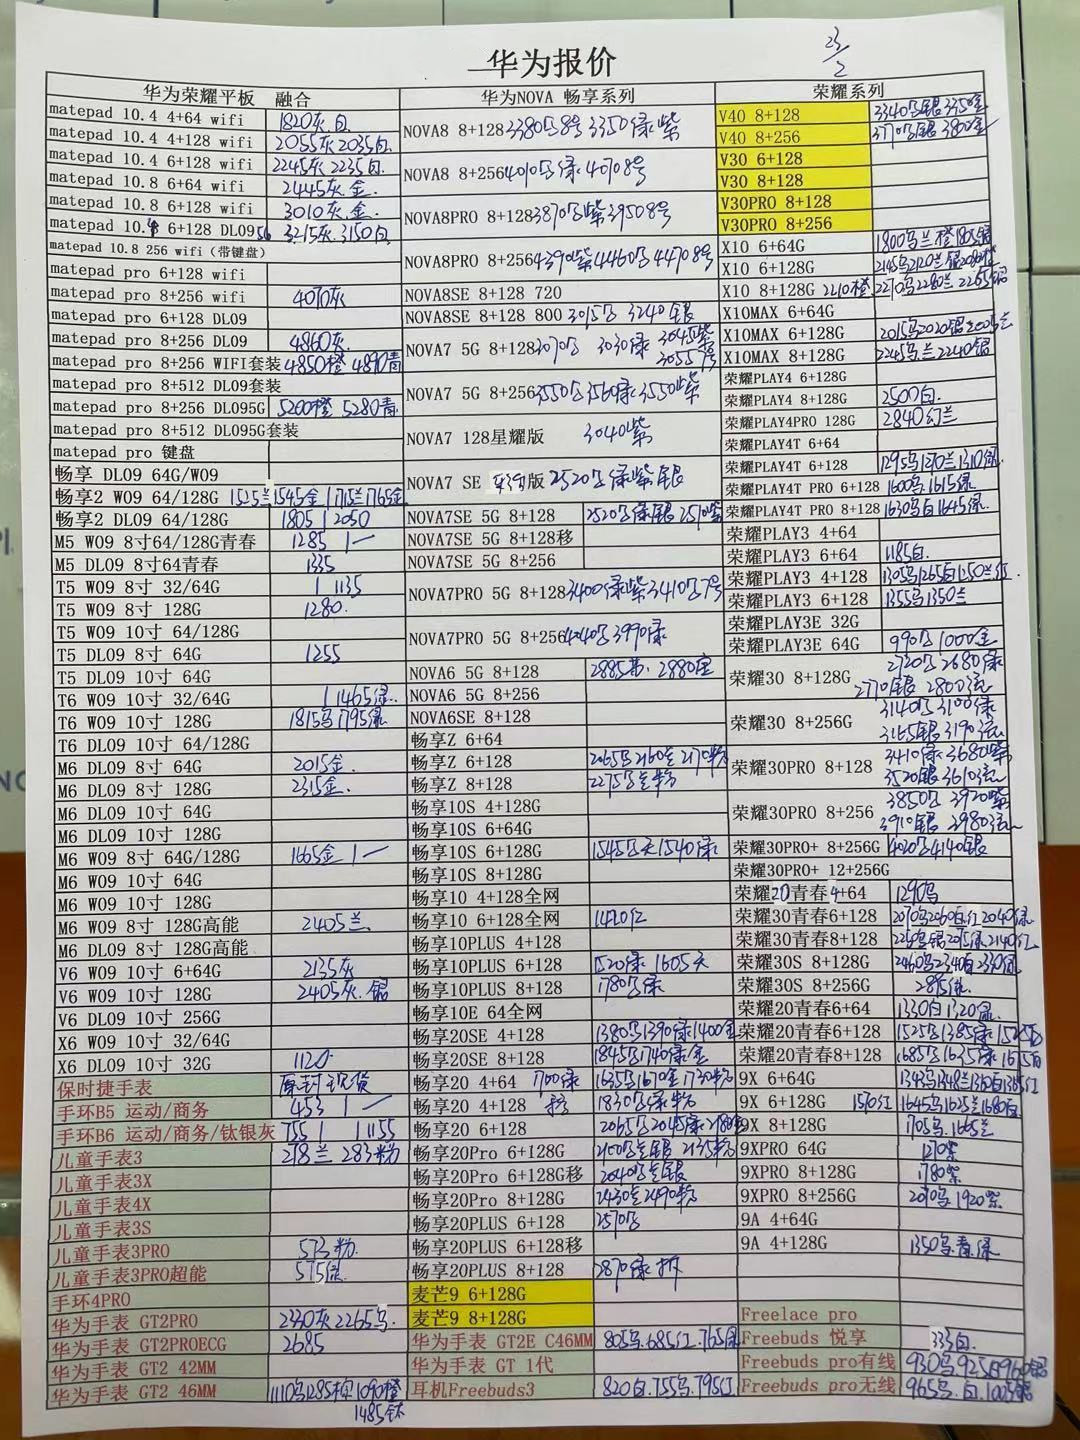 华为报价
23/2
华为荣耀平板 融合
matepad 10.4 4+64 wifi 1820灰白
matepad 10.4 4+128 wifi 2055灰2035白
matepad 10.4 6+128 wifi 2245灰2235白
matepad 10.8 6+64 wifi 2445灰.金
matepad 10.8 6+128 wifi 3010灰.金
6+128 DL09 3215灰.3150白
matepad 10.8 256 wifi（带键盘）
matepad pro 6+128 wifi
matepad pro 8+256 wifi 4070灰
matepad pro 6+128 DL09
matepad pro 8+256 DL09 4860灰
matepad pro 8+256 WIFI套装 4850橙 4890青
matepad pro 8+512 DL09套装
matepad pro 8+256 DL095G 5200橙 5280青
matepad pro 8+512 DL095G套装
matepad pro 键盘
畅享 DL09 64G/W09
畅享2 W09 64/128G 1525兰1545金 1715兰1765金
畅享2 DL09 64/128G 1805 | 2050
M5 W09 8寸64/128G青春 1285 | —
M5 DL09 8寸64青春 1335
T5 W09 8寸 32/64G | 1135
T5 W09 8寸 128G 1280.
T5 W09 10寸 64/128G
T5 DL09 8寸 64G 1255
T5 DL09 10寸 64G
T6 W09 10寸 32/64G | 1465绿.
T6 W09 10寸 128G 1815乌1795绿
T6 DL09 10寸 64/128G
M6 DL09 8寸 64G 2015金.
M6 DL09 8寸 128G 2315金.
M6 DL09 10寸 64G
M6 DL09 10寸 128G
M6 W09 8寸 64G/128G 1665金 | —
M6 W09 10寸 64G
M6 W09 10寸 128G
M6 W09 8寸 128G高能 2405兰.
M6 DL09 8寸 128G高能
V6 W09 10寸 6+64G 2135灰
V6 W09 10寸 128G 2405灰.银
V6 DL09 10寸 256G
X6 W09 10寸 32/64G
X6 DL09 10寸 32G 1120.
保时捷手表 原封现货
手环B5 运动/商务 453 | —
手环B6 运动/商务/钛银灰 755 | | 1155
儿童手表3 278兰 283粉
儿童手表3X
儿童手表4X
儿童手表3S
儿童手表3PRO 573粉.
儿童手表3PRO超能 575绿.
手环4PRO
华为手表 GT2PRO 2330灰2265乌.
华为手表 GT2PROECG 2685
华为手表 GT2 42MM
华为手表 GT2 46MM 1110乌1285棕1090橙
1485钛
华为NOVA 畅享系列
NOVA8 8+128 3380乌8号 3350绿紫
NOVA8 8+256 4010乌绿.40708号
NOVA8PRO 8+128 3870乌紫39508号
NOVA8PRO 8+256 4390紫4460乌44708号
NOVA8SE 8+128 720
NOVA8SE 8+128 800 3015乌 3240银
NOVA7 5G 8+128 3070乌 3030绿 3045紫
30557号
NOVA7 5G 8+256 3550乌3560绿3550紫
NOVA7 128星耀版 3040紫
NOVA7 SE 版 2520乌绿紫银
NOVA7SE 5G 8+128 2520乌绿银 2510紫
NOVA7SE 5G 8+128移
NOVA7SE 5G 8+256
NOVA7PRO 5G 8+128 3400绿紫3410乌7号
NOVA7PRO 5G 8+256 4040乌3990绿
NOVA6 5G 8+128 2880金
NOVA6 5G 8+256
NOVA6SE 8+128
畅享Z 6+64
畅享Z 6+128 2065乌2160兰2170粉
畅享Z 8+128 2275乌兰粉
畅享10S 4+128G
畅享10S 6+64G
畅享10S 6+128G 1545乌天1540绿
畅享10S 8+128G
畅享10 4+128全网
畅享10 6+128全网 1470红
畅享10PLUS 4+128
畅享10PLUS 6+128 1520绿 1605天
畅享10PLUS 8+128 1780乌绿
畅享10E 64全网
畅享20SE 4+128 1380乌1390绿1400金
畅享20SE 8+128 1845乌1740绿金
畅享20 4+64 1700绿 1635乌1670金1730粉
畅享20 4+128 1830乌绿粉
畅享20 6+128 2065乌2045绿
畅享20Pro 6+128G 2100乌兰银 2135粉
畅享20Pro 6+128G移 2040乌兰银
畅享20Pro 8+128G 2430兰2490粉
畅享20PLUS 6+128 2570乌
畅享20PLUS 6+128移
畅享20PLUS 8+128 2870绿 拆
麦芒9 6+128G
麦芒9 8+128G
华为手表 GT2E C46MM 805乌.685红.765绿
华为手表 GT 1代
耳机Freebuds3 820白.755乌.795红
荣耀系列
V40 8+128 3340乌银3350金
V40 8+256 3770乌银3800金
V30 6+128
V30 8+128
V30PRO 8+128
V30PRO 8+256
X10 6+64G 1800乌兰橙1805银
X10 6+128G 2145乌2120兰银2080橙
X10 8+128G 2210橙 2270乌2280兰2265银
X10MAX 6+64G
X10MAX 6+128G 2015乌2020银2005兰
X10MAX 8+128G 2245乌兰2240银
荣耀PLAY4 6+128G
荣耀PLAY4 8+128G 2500白.
荣耀PLAY4PRO 128G 2840幻兰
荣耀PLAY4T 6+64
荣耀PLAY4T 6+128 1295乌1270兰1310绿
荣耀PLAY4T PRO 6+128 1600乌1615绿
荣耀PLAY4T PRO 8+128 1630乌白1645绿
荣耀PLAY3 4+64
荣耀PLAY3 6+64 1185白.
荣耀PLAY3 4+128 1305乌1265白1250兰红.
荣耀PLAY3 6+128 1355乌1350兰
荣耀PLAY3E 32G
荣耀PLAY3E 64G 990乌1000金
荣耀30 8+128G 2720乌2680绿
2770银2800流
荣耀30 8+256G 3140乌3100绿
3165银3190流
荣耀30PRO 8+128 3410绿3680紫
3520银3610流
荣耀30PRO 8+256 3850乌 3920紫
3910银 3980流
荣耀30PRO+ 8+256G 4020乌4140银
荣耀30PRO+ 12+256G
荣耀20青春4+64 1290乌
荣耀30青春6+128 2070乌2060白.红2040绿
荣耀30青春8+128 2140红
荣耀30S 8+128G 2460乌2340白2330绿
荣耀30S 8+256G 2875绿.
荣耀20青春6+64 1330白1320绿
荣耀20青春6+128 1525乌1385绿
荣耀20青春8+128 1685乌1635绿1675白
9X 6+64G 1343乌1348兰1360白1365红
9X 6+128G 1570红 1645乌1625兰1680白
9X 8+128G 1705乌.1665兰
9XPRO 64G 1270紫
9XPRO 8+128G 1780紫
9XPRO 8+256G 2070乌1920紫
9A 4+64G
9A 4+128G 1350乌.青.绿
Freelace pro
Freebuds 悦享 333白.
Freebuds pro有线 930乌925白960银
Freebuds pro无线 965乌.白.1005银